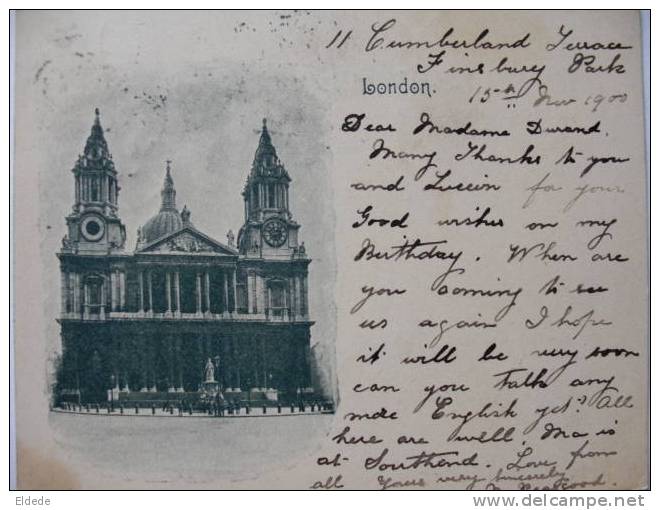 11 Cumberland Terrace
Finsbury Park
London.
15th Nov 1900
Dear Madame Durand.
Many Thanks to you
and Luccin for your
Good wishes on my
Birthday. When are
you coming to see
us again I hope
it will be very soon
can you talk any
more English yet? All
here are well. Ma is
at Southend. Love from
all Yours very sincerely
Eldede
www.delcampe.net